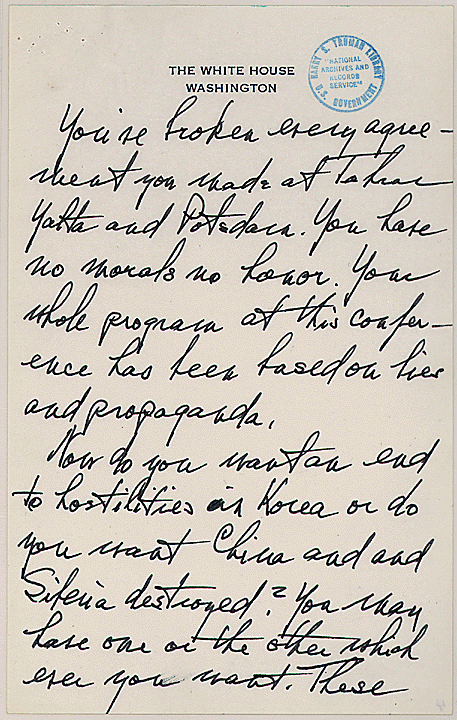 THE WHITE HOUSE
WASHINGTON
HARRY S. TRUMAN LIBRARY
"NATIONAL
ARCHIVES AND
RECORDS
SERVICE"
U.S. GOVERNMENT
You've broken every agree-
ment you made at Tehran
Yalta and Potsdam. You have
no morals no honor. Your
whole program at this confer-
ence has been based on lies
and propaganda.
Now do you want an end
to hostilities in Korea or do
you want China and and
Siberia destroyed? You may
have one or the other which
ever you want. These